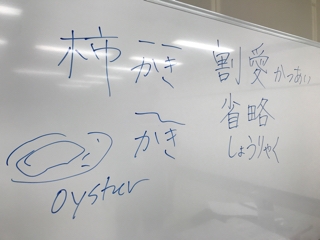 柿 かき 割愛 かつあい
かき 省略
しょうりゃく
oyster